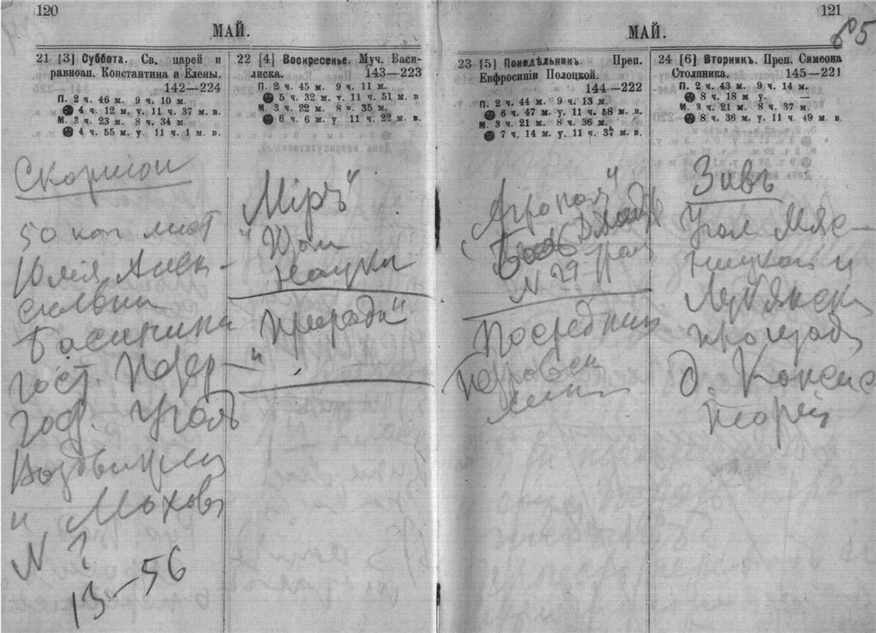 120
МАЙ.
21 [3] Суббота. Св. царей и
равноап. Константина и Елены.
142—224
П. 2 ч. 46 м. 9 ч. 10 м.
4 ч. 12 м. у. 11 ч. 37 м. в.
М. 3 ч. 23 м. 8 ч. 34 м.
4 ч. 55 м. у 11 ч. 1 м. в.
Скорпион
50 коп лист
Юлія Алек-
Басинина
гост. Петер-
гоф. Угол
Воздвижен
и Мохов
N ?
13—56
22 [4] Воскресенье. Муч. Васи-
лиска. 143—223
П. 2 ч. 45 м. 9 ч. 11 м.
5 ч. 32 м. у. 11 ч. 51 м. в
М. 3 ч. 22 м. 8 ч. 35 м.
6 ч. 6 м. у 11 ч. 22 м. в.
Міръ"
науки
"Природа"
121
МАЙ.
85
23 [5] Понедѣльникъ. Преп.
Евфросиніи Полоцкой.
144—222
П. 2 ч. 44 м. 9 ч. 13 м.
6 ч. 47 м. у. 11 ч. 58 м. в.
М. 3 ч. 21 м. 8 ч. 36 м.
7 ч. 14 м. у. 11 ч. 37 м. в.
N 29
Посредник
Петровск
24 [6] Вторникъ. Преп. Симеона
Столпника. 145—221
П. 2 ч. 43 м. 9 ч. 14 м.
8 ч. 18 м. у. —
М. 3 ч. 21 м. 8 ч. 37 м.
8 ч. 36 м. у. 11 ч. 49 м. в.
Зивъ
Угол Мяс-
ницкой и
Лубянск
проезда
д. Консис
торіи